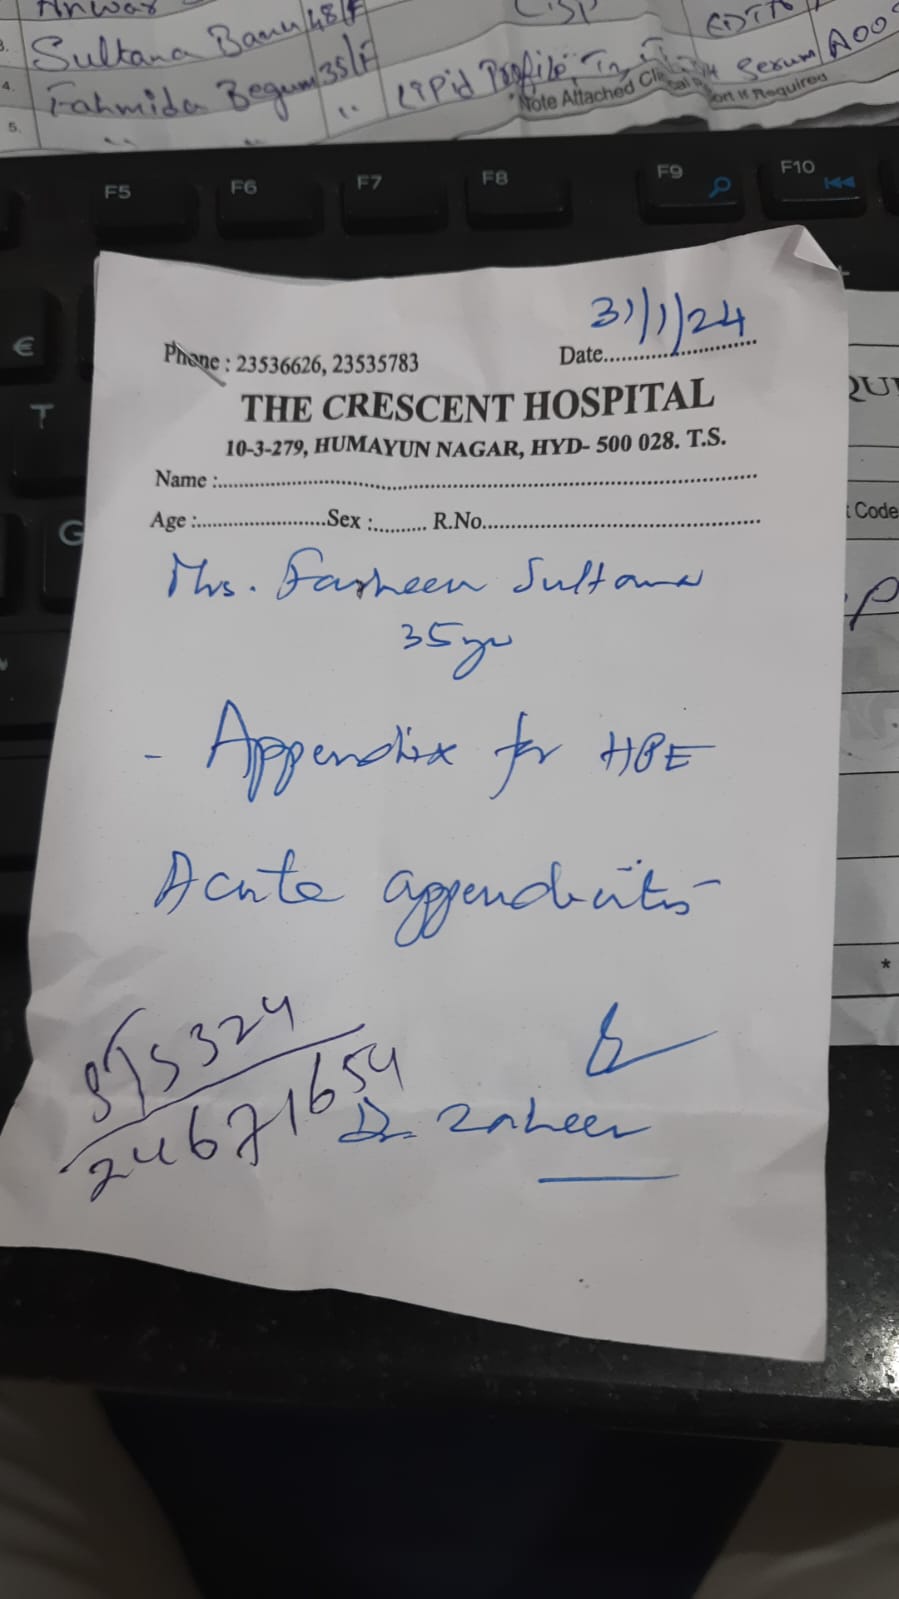 Anwar
3. Sultana Banu 48/F
4. Fahmida Begum 35/F " Lipid Profile, Serum A00
*Note Attached
Required
5. " "
F5 F6 F7 F8 F9 F10
€
T
G
31/1/24
Phone : 23536626, 23535783 Date
THE CRESCENT HOSPITAL
10-3-279, HUMAYUN NAGAR, HYD- 500 028. T.S.
Name :
Age : Sex : R.No.
Code
Mrs. Farheen Sultana
35 yr
- Appendix for HPE
Acute appendicitis
*
24671654
Dr. Zaheer